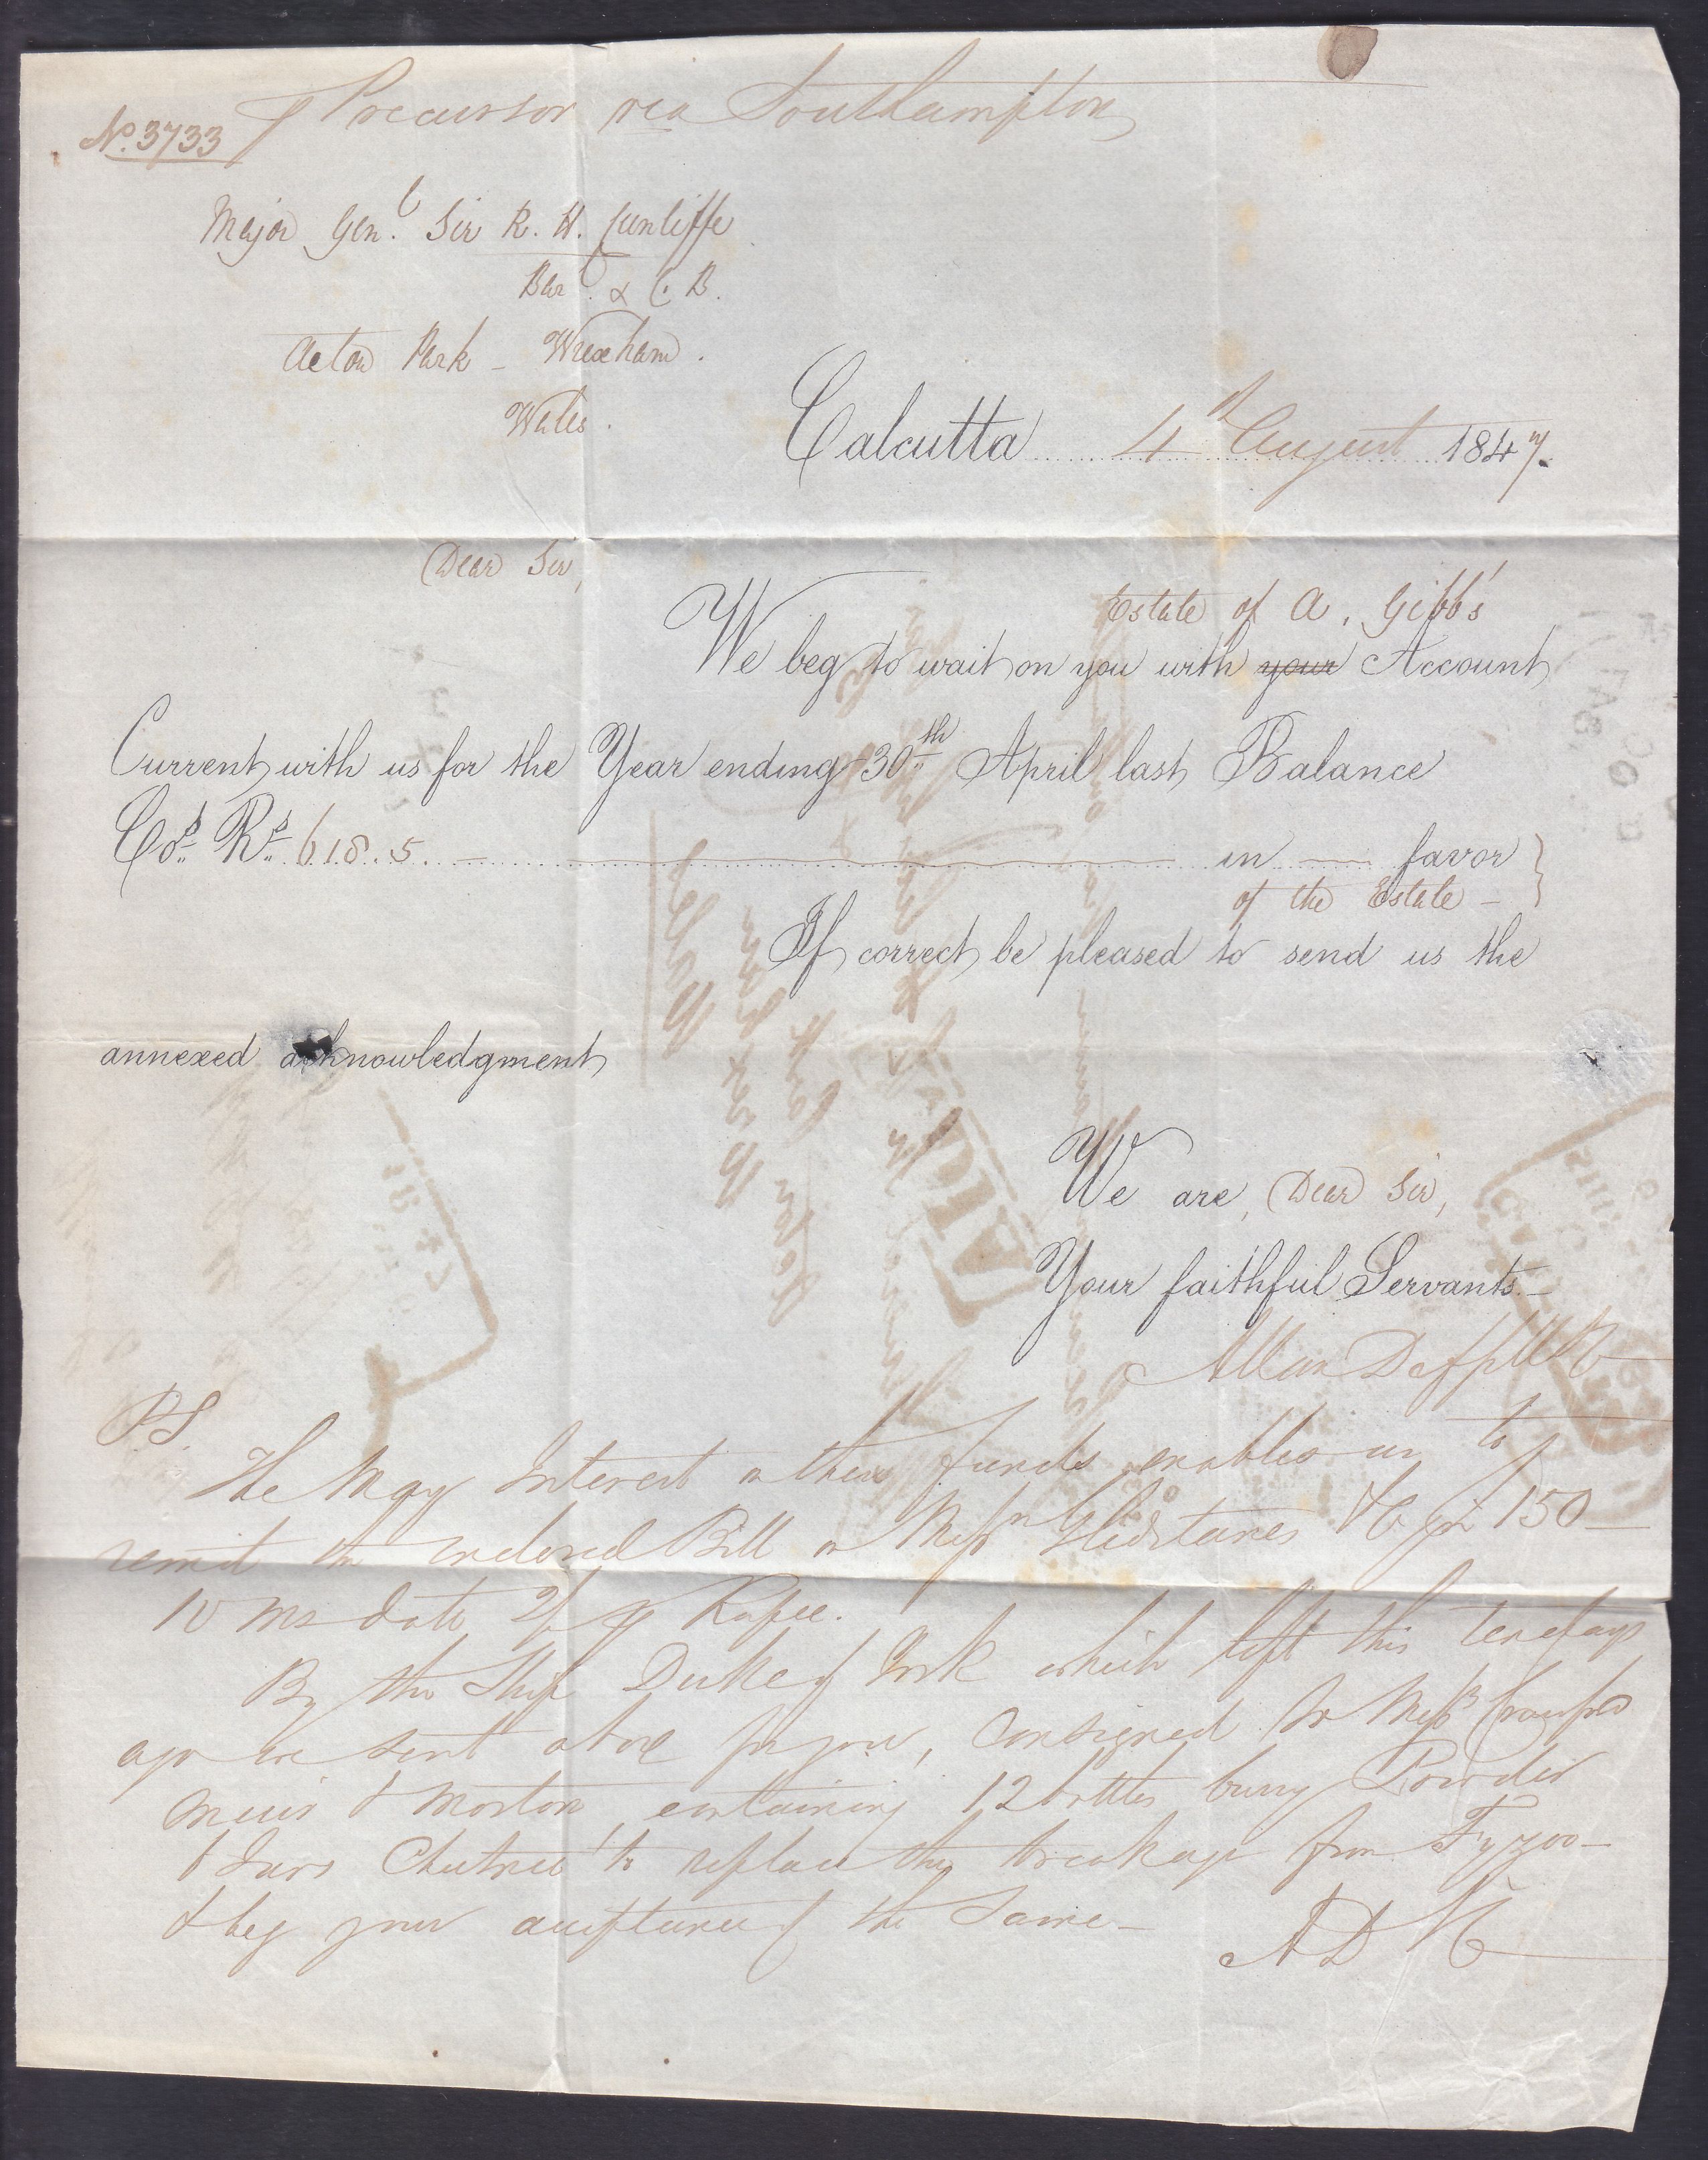 No. 3733
p Precursor via Southampton
Major Genl. Sir R. H. Cunliffe
Bart. & C. B.
Acton Park - Wrexham.
Wales.
Calcutta 4th August 1847.
Dear Sir,
Estate of A. Gibb's
We beg to wait on you with your Account
Current with us for the Year ending 30th April last Balance
Cos. Rs. 618. 5. in favor
of the Estate -
If correct be pleased to send us the
annexed acknowledgment
We are, Dear Sir,
Your faithful Servants
Allan Deffell & Co
P.S.
The May Interest on these funds enables us to
remit the enclosed Bill on Messrs Gladstanes & Co for £150
10 ms date 2/ p Rupee.
By the Ship Duke of York which left this ten days
ago we sent a box for you, consigned to Messrs
Muir & Morton, containing 12 bottles Curry Powder
6 Jars Chutnee to replace the breakage from
& beg your acceptance of the Same -
A D & Co